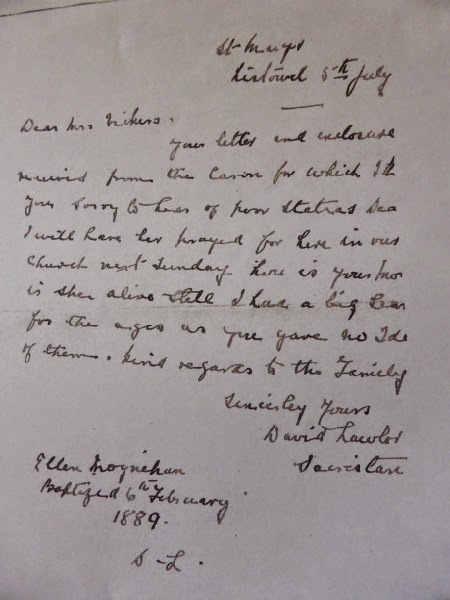 St Marys
Listowel 5th July
Dear Mrs Vickers.
Your letter and enclosure
received from the Canon for which I th
you Sorry to hear of poor Statias Dea
I will have her prayed for here in our
Church next Sunday. How is your mo
is she alive Still I had a big Sear
for the ages as you gave no Ide
of them. Kind regards to the Family
Sincerley Yours
David Lawlor
Sacristan
Ellen Moynihan
Baptized 6th February
1889.
D-L.